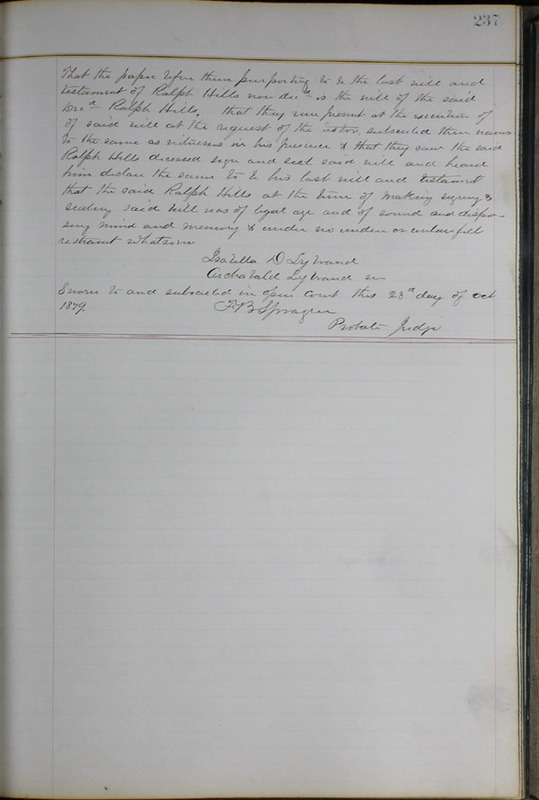 237
That the paper before them purporting to be the last will and
testament of Ralph Hills now decd is the will of the said
Decd Ralph Hills, that they were present at the execution of
of said will at the request of the testator, subscribed their names
to the same as witnesses in his presence & that they saw the said
Ralph Hills deceased sign and seal said will and heard
him declare the same to be his last will and testament
that the said Ralph Hills at the time of making signing &
sealing said will was of legal age and of sound and dispo-
sing mind and memory & under no undue or unlawfull
restraint whatsoever
Isabella D
Archabald Sr
Sworn to and subscribed in open Court this 23d day of Oct
1879. F B Sprague
Probate Judge